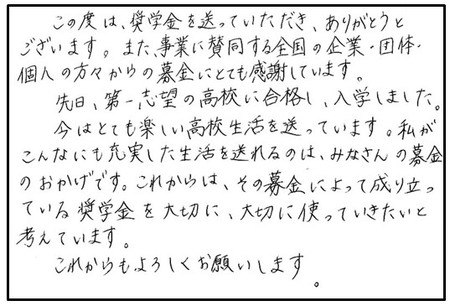 この度は、奨学金を送っていただき、ありがとうと
ございます。また、事業に賛同する全国の企業・団体・
個人の方々からの募金にとても感謝しています。
先日、第一志望の高校に合格し、入学しました。
今はとても楽しい高校生活を送っています。私が
こんなにも充実した生活を送れるのは、みなさんの募金
のおかげです。これからは、その募金によって成り立っ
ている奨学金を大切に、大切に使っていきたいと
考えています。
これからもよろしくお願いします。